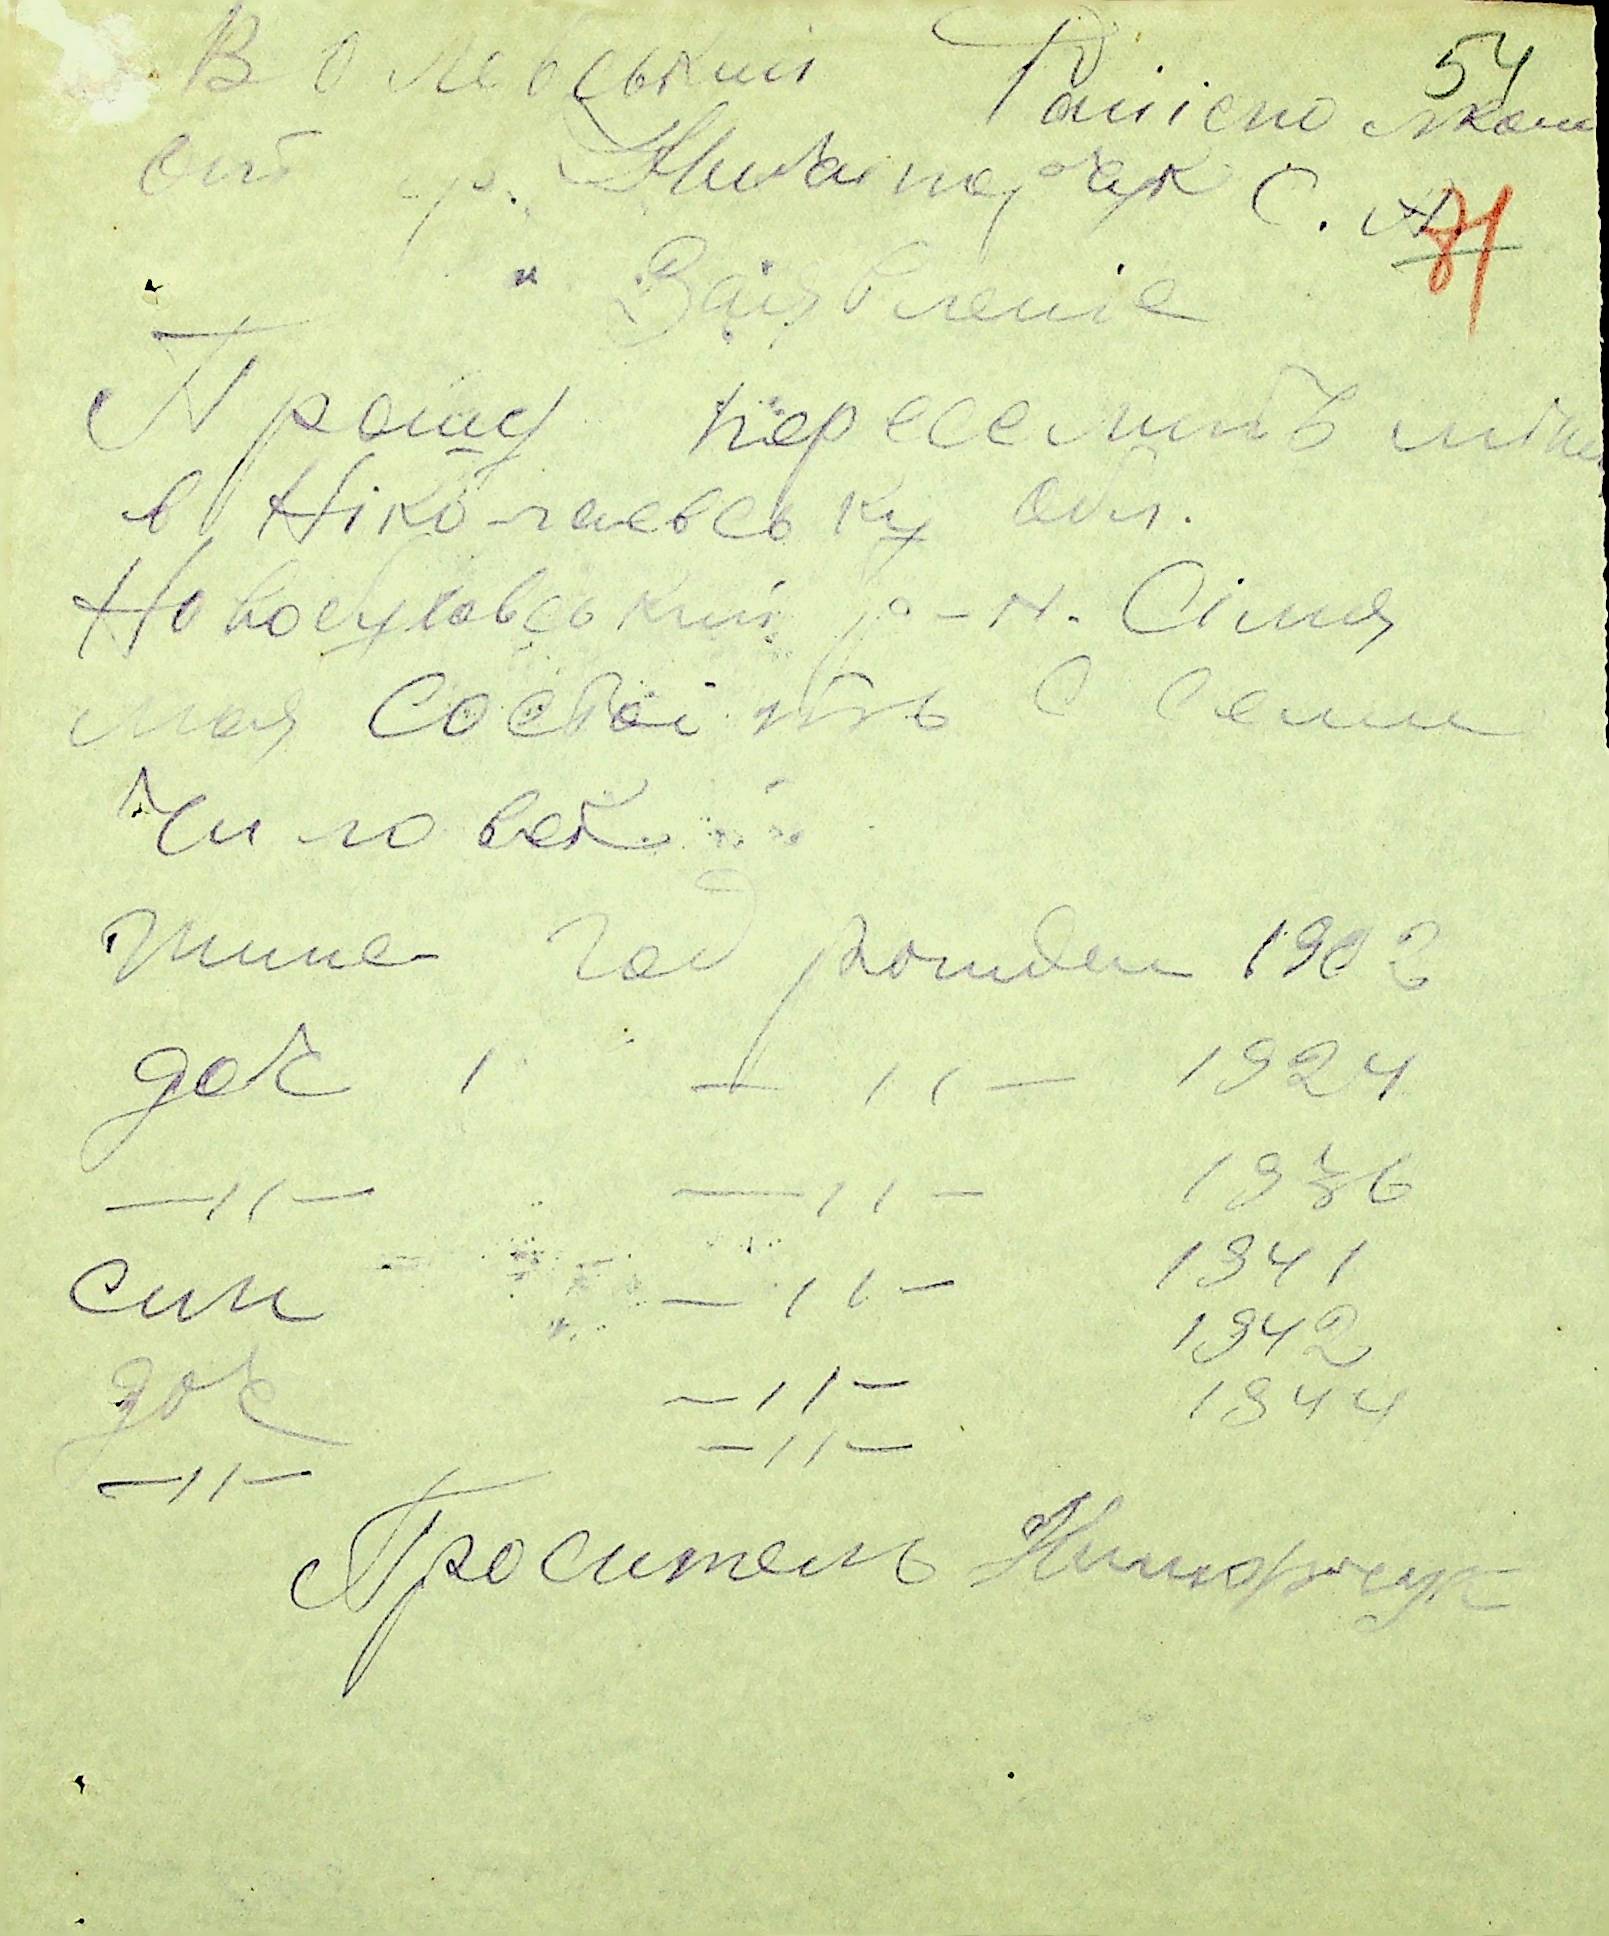 54
В Олевський Райісполком
от гр. Никапорчук С. А.
81
Заівленіе
Прошу переселить міне
в Ніколаевську обл.
Новобуговський р-н. Сімя
моя состоіть с семи
чиловек
жинка год рожден 1902
доч 1 —11— 1924
—11— —11— 1936
син —11— 1941
доч —11— 1942
—11— —11— 1944
Проситель Никорчук